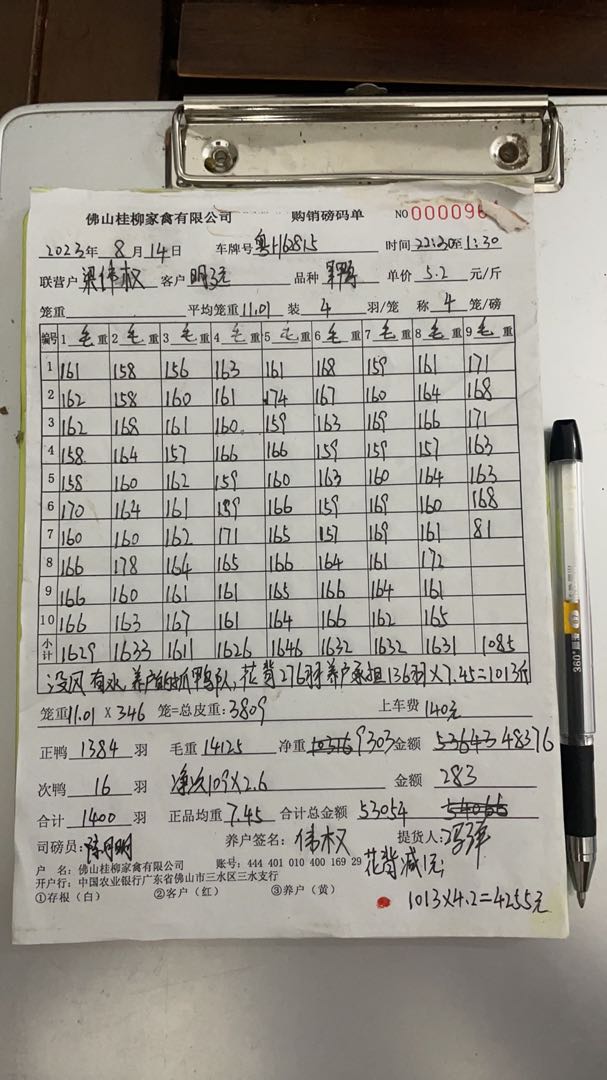 佛山桂柳家禽有限公司 购销磅码单 NO 00009
2023年 8月 14日 车牌号 粤H62815 时间 22:30至1:30
联营户 梁伟权 客户 明记 品种 单价 5.2 元/斤
笼重 平均笼重11.01 装 4 羽/笼 称 4 笼/磅
编号 1 毛重 2 毛重 3 毛重 4 毛重 5 毛重 6 毛重 7 毛重 8 毛重 9 毛重
1 161 158 156 163 161 168 159 161 171
2 162 158 160 161 174 167 160 164 168
3 162 168 161 160 159 163 169 166 171
4 158 164 157 166 166 159 159 157 163
5 158 160 162 159 160 163 160 164 163
6 170 164 161 159 166 159 169 160 168
7 160 160 162 171 165 157 169 161 81
8 166 178 164 165 166 164 161 172
9 166 160 161 161 165 166 164 161
10 166 163 167 161 164 166 162 165
小计 1629 1633 1611 1626 1646 1632 1632 1631 1085
没风有水,养户自的抓鸭队,花背276羽养户承担136羽×7.45=1013斤
笼重11.01 X 346 笼=总皮重:3809 上车费 140元
正鸭 1384 羽 毛重 14125 净重 10316 9303 金额 53643 48376
次鸭 16 羽 净次109×2.6 金额 283
合计 1400 羽 正品均重 7.45 合计总金额 53054 54066
司磅员: 养户签名: 伟权 提货人:
户 名: 佛山桂柳家禽有限公司 账号: 444 401 010 400 169 29
花背减1元;
开户行: 中国农业银行广东省佛山市三水区三水支行
①存根(白) ②客户(红) ③养户(黄)
1013×4.2=4255元
360°